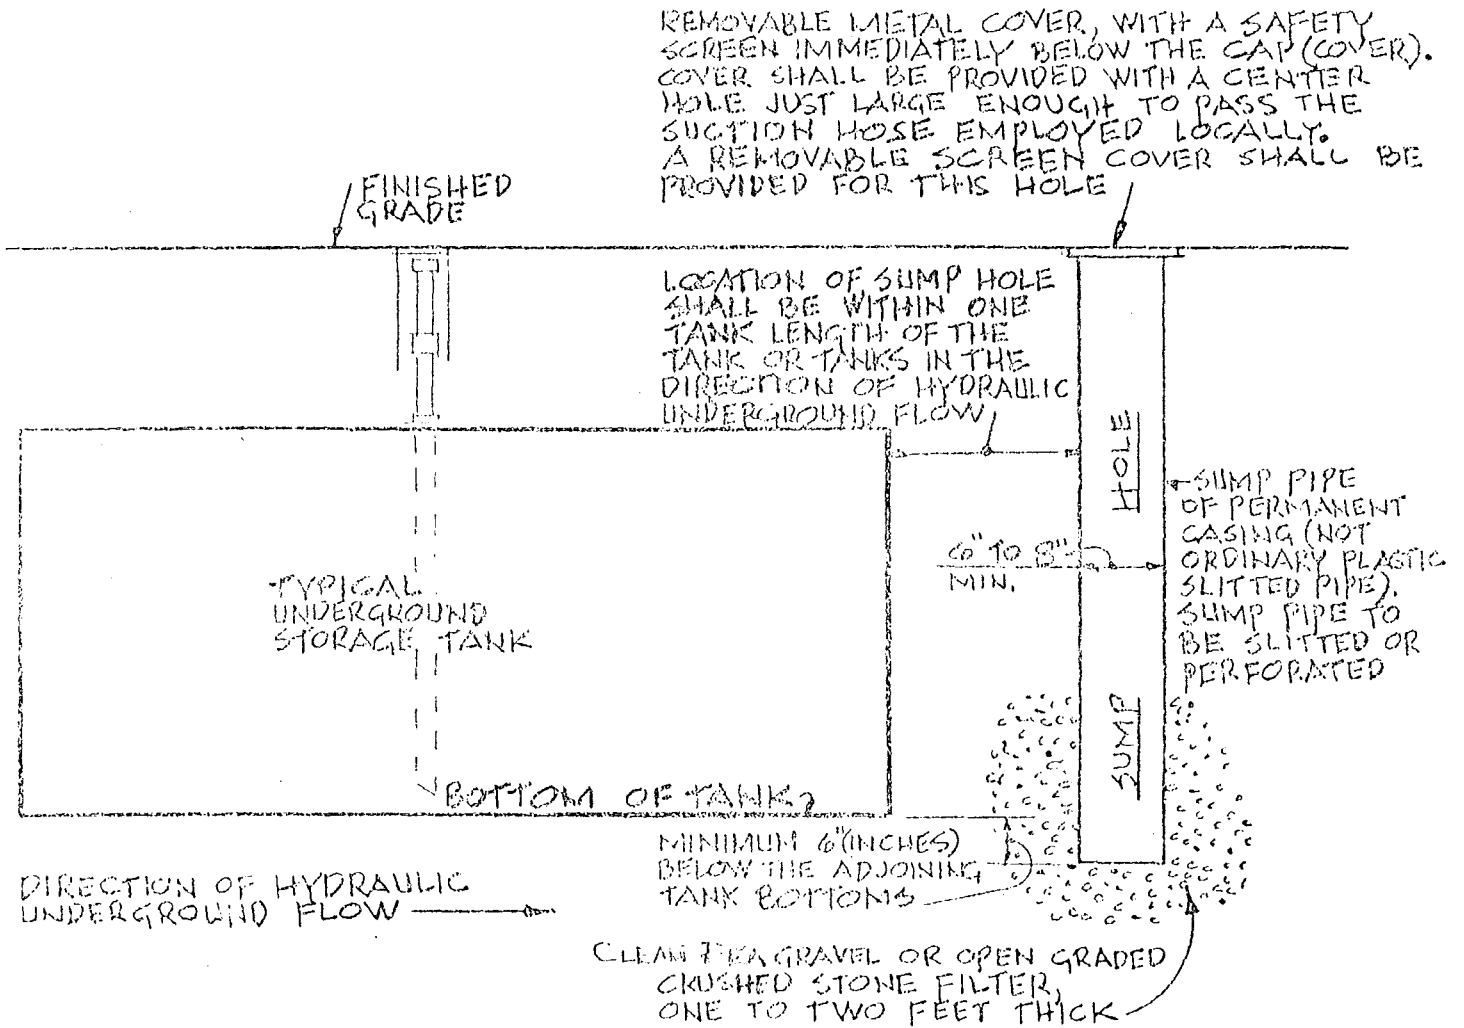 REMOVABLE METAL COVER, WITH A SAFETY
SCREEN IMMEDIATELY BELOW THE CAP (COVER).
COVER SHALL BE PROVIDED WITH A CENTER
HOLE JUST LARGE ENOUGH TO PASS THE
SUCTION HOSE EMPLOYED LOCALLY.
A REMOVABLE SCREEN COVER SHALL BE
PROVIDED FOR THIS HOLE
FINISHED
GRADE
LOCATION OF SUMP HOLE
SHALL BE WITHIN ONE
TANK LENGTH OF THE
TANK OR TANKS IN THE
DIRECTION OF HYDRAULIC
UNDERGROUND FLOW
SUMP HOLE
SUMP PIPE
OF PERMANENT
CASING (NOT
ORDINARY PLASTIC
SLITTED PIPE).
SUMP PIPE TO
BE SLITTED OR
PERFORATED
6" TO 8"
MIN.
TYPICAL
UNDERGROUND
STORAGE TANK
BOTTOM OF TANK
MINIMUM 6" (INCHES)
BELOW THE ADJOINING
TANK BOTTOMS
DIRECTION OF HYDRAULIC
UNDERGROUND FLOW
CLEAN PEA GRAVEL OR OPEN GRADED
CRUSHED STONE FILTER,
ONE TO TWO FEET THICK